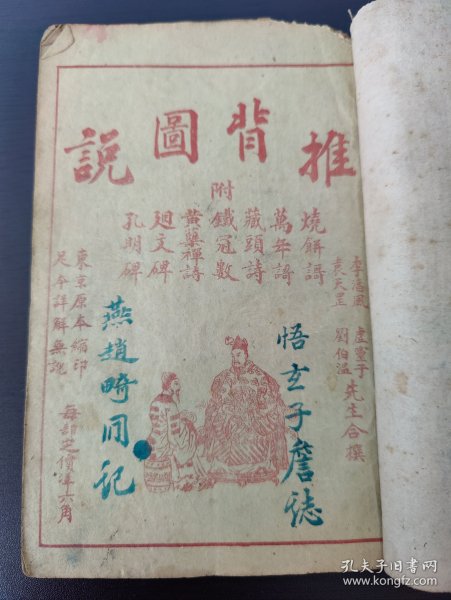 推背圖説
附
燒餅謌
萬年謌
藏頭詩
鐵冠數
黃蘗禪詩
廻文碑
孔明碑
李淳風
袁天罡
虛靈子
劉伯温
先生合撰
東京原本縮印
足今詳解無訛
每部定價洋六角
悟玄子詹誌
燕趙畸月記
孔夫子旧书网
www.kongfz.com